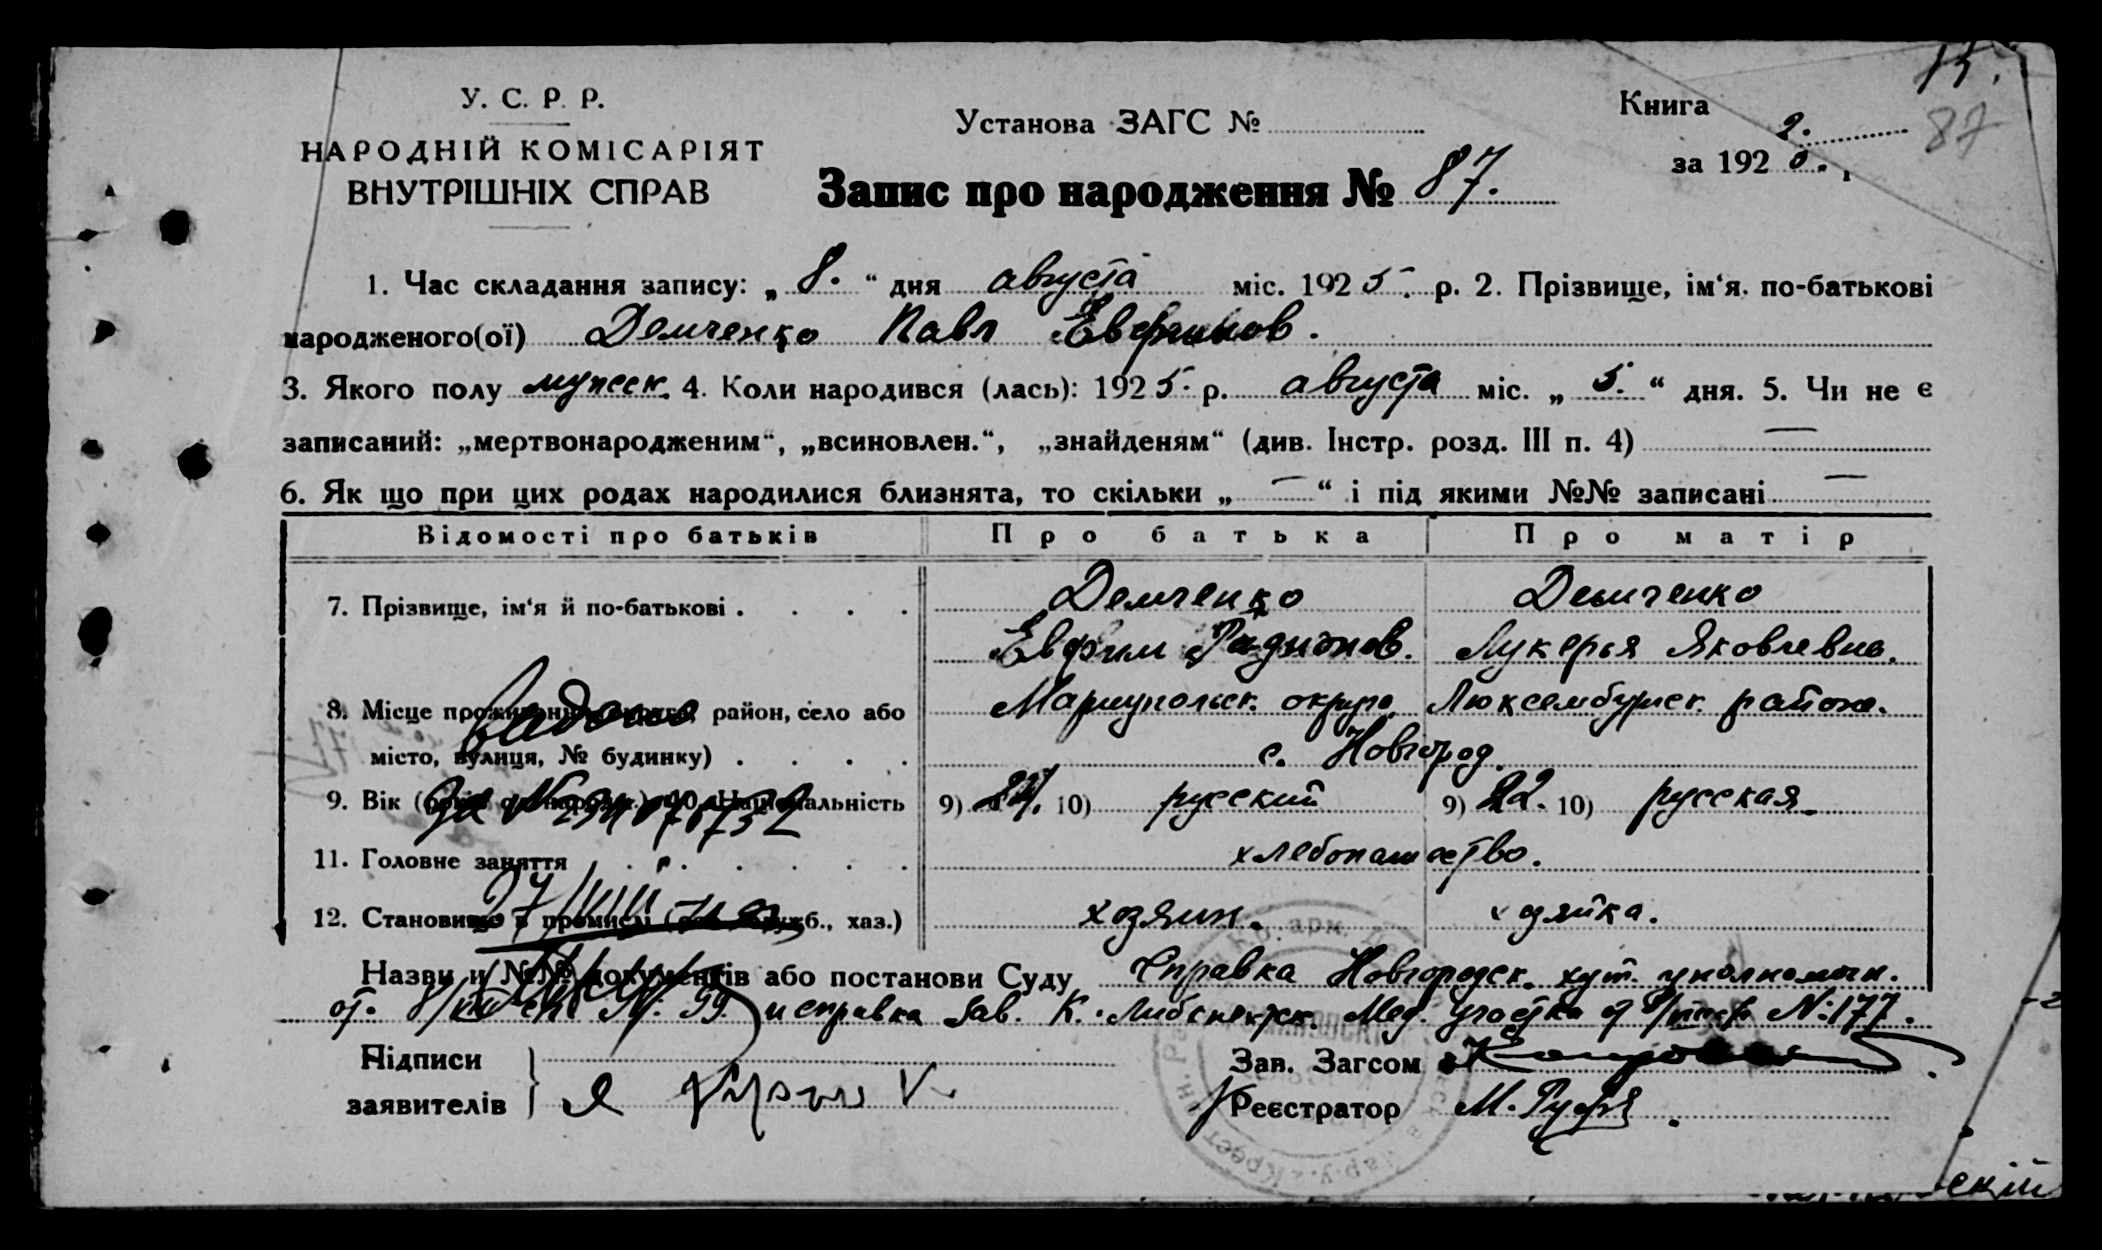 15.
У. С. Р. Р.
НАРОДНІЙ КОМІСАРІЯТ
ВНУТРІШНІХ СПРАВ
Установа ЗАГС №
Книга 2.
87
за 192
Запис про народження № 87.
1. Час складання запису: „ 8. “ дня августа міс. 1925. р. 2. Прізвище, ім‘я. по-батькові
народженого(ої) Демченко Павл Евфимов.
3. Якого полу мужск. 4. Коли народився (лась): 1925. р. августа міс. „ 5. “ дня. 5. Чи не є
записаний: „мертвонародженим“, „всиновлен.“, „знайденям“ (див. Інстр. розд. III п. 4) —
6. Як що при цих родах народилися близнята, то скільки „ — “ і під якими №№ записані —
Відомості про батьків Про батька Про матір
7. Прізвище, ім‘я й по-батькові . . . . Демченко Демченко
Евфим Радионов. Лукерья Яковлевна.
8. Місце район, село або Мариупольск. округа, Люксембургск. района.
місто, вулиця, № будинку) . . . . с. Новгород.
9. Вік Національність 9) 10) русский 9) 22. 10) русская.
11. Головне заняття хлебопашество.
12. Становище в хаз.) хозяин. хозяйка.
Назви и №№ документів або постанови Суду Справка Новгородск. хут. уполномоч.
от 8/VIII № 99 и справка Зав. К.-Либкнехтск. Мед. Участка от № 177.
Підписи
заявителів
Я
Зав. Загсом
Реєстратор М.
ский